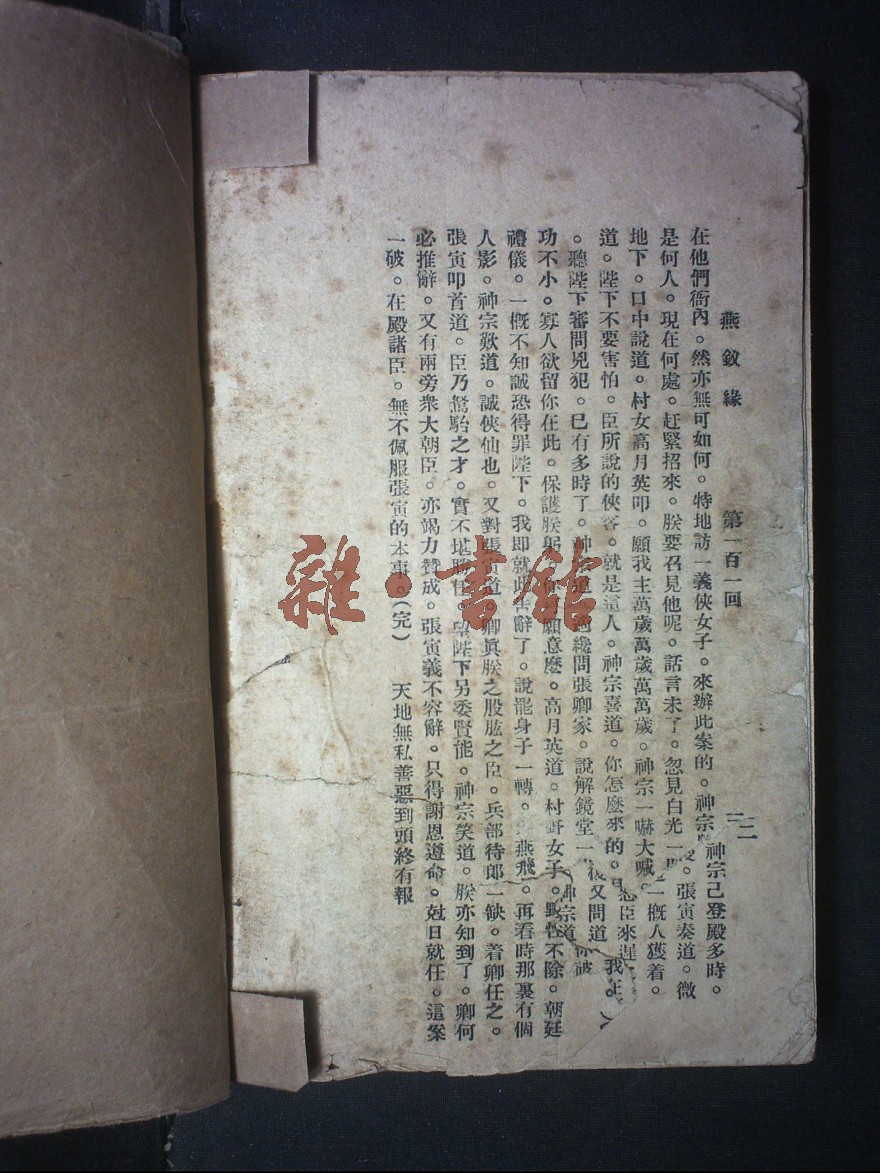 燕釵緣　第一百一回　二
在他們衙內。然亦無可如何。特地訪一義俠女子。來辦此案的。神宗神宗己登殿多時。
是何人。現在何處。赶緊招來。朕要召見他呢。話言未了。忽見白光一張寅奏道。微
地下。口中說道。村女高月英叩。願我主萬歲萬歲萬萬歲。神宗一嚇大喊。一概人獲着。
道。陛下不要害怕。臣所說的俠客。就是這人。神宗喜道。你怎麼來的。臣來遲
。聽陛下審問兇犯。已有多時了。神宗道。纔問張卿家。說解鏡堂一又問道我
功不小。寡人欲留你在此。保護朕躬。你可願意麼。高月英道。村野女子。野性不除。朝廷
禮儀。一概不知誠恐得罪陛下。我即就此告辭了。說罷身子一轉。燕飛。再看時那裏有個
人影。神宗歎道。誠俠仙也。又對張寅道。卿眞朕之股肱之臣。兵部待郎一缺。着卿任之。
張寅叩首道。臣乃駑駘之才。實不堪勝任。望陛下另委賢能。神宗笑道。朕亦知到了。卿何
必推辭。又有兩旁衆大朝臣。亦竭力贊成。張寅義不容辭。只得謝恩遵命。尅日就任。這案
一破。在殿諸臣。無不佩服張寅的本事。（完）　天地無私善惡到頭終有報
雜·書館